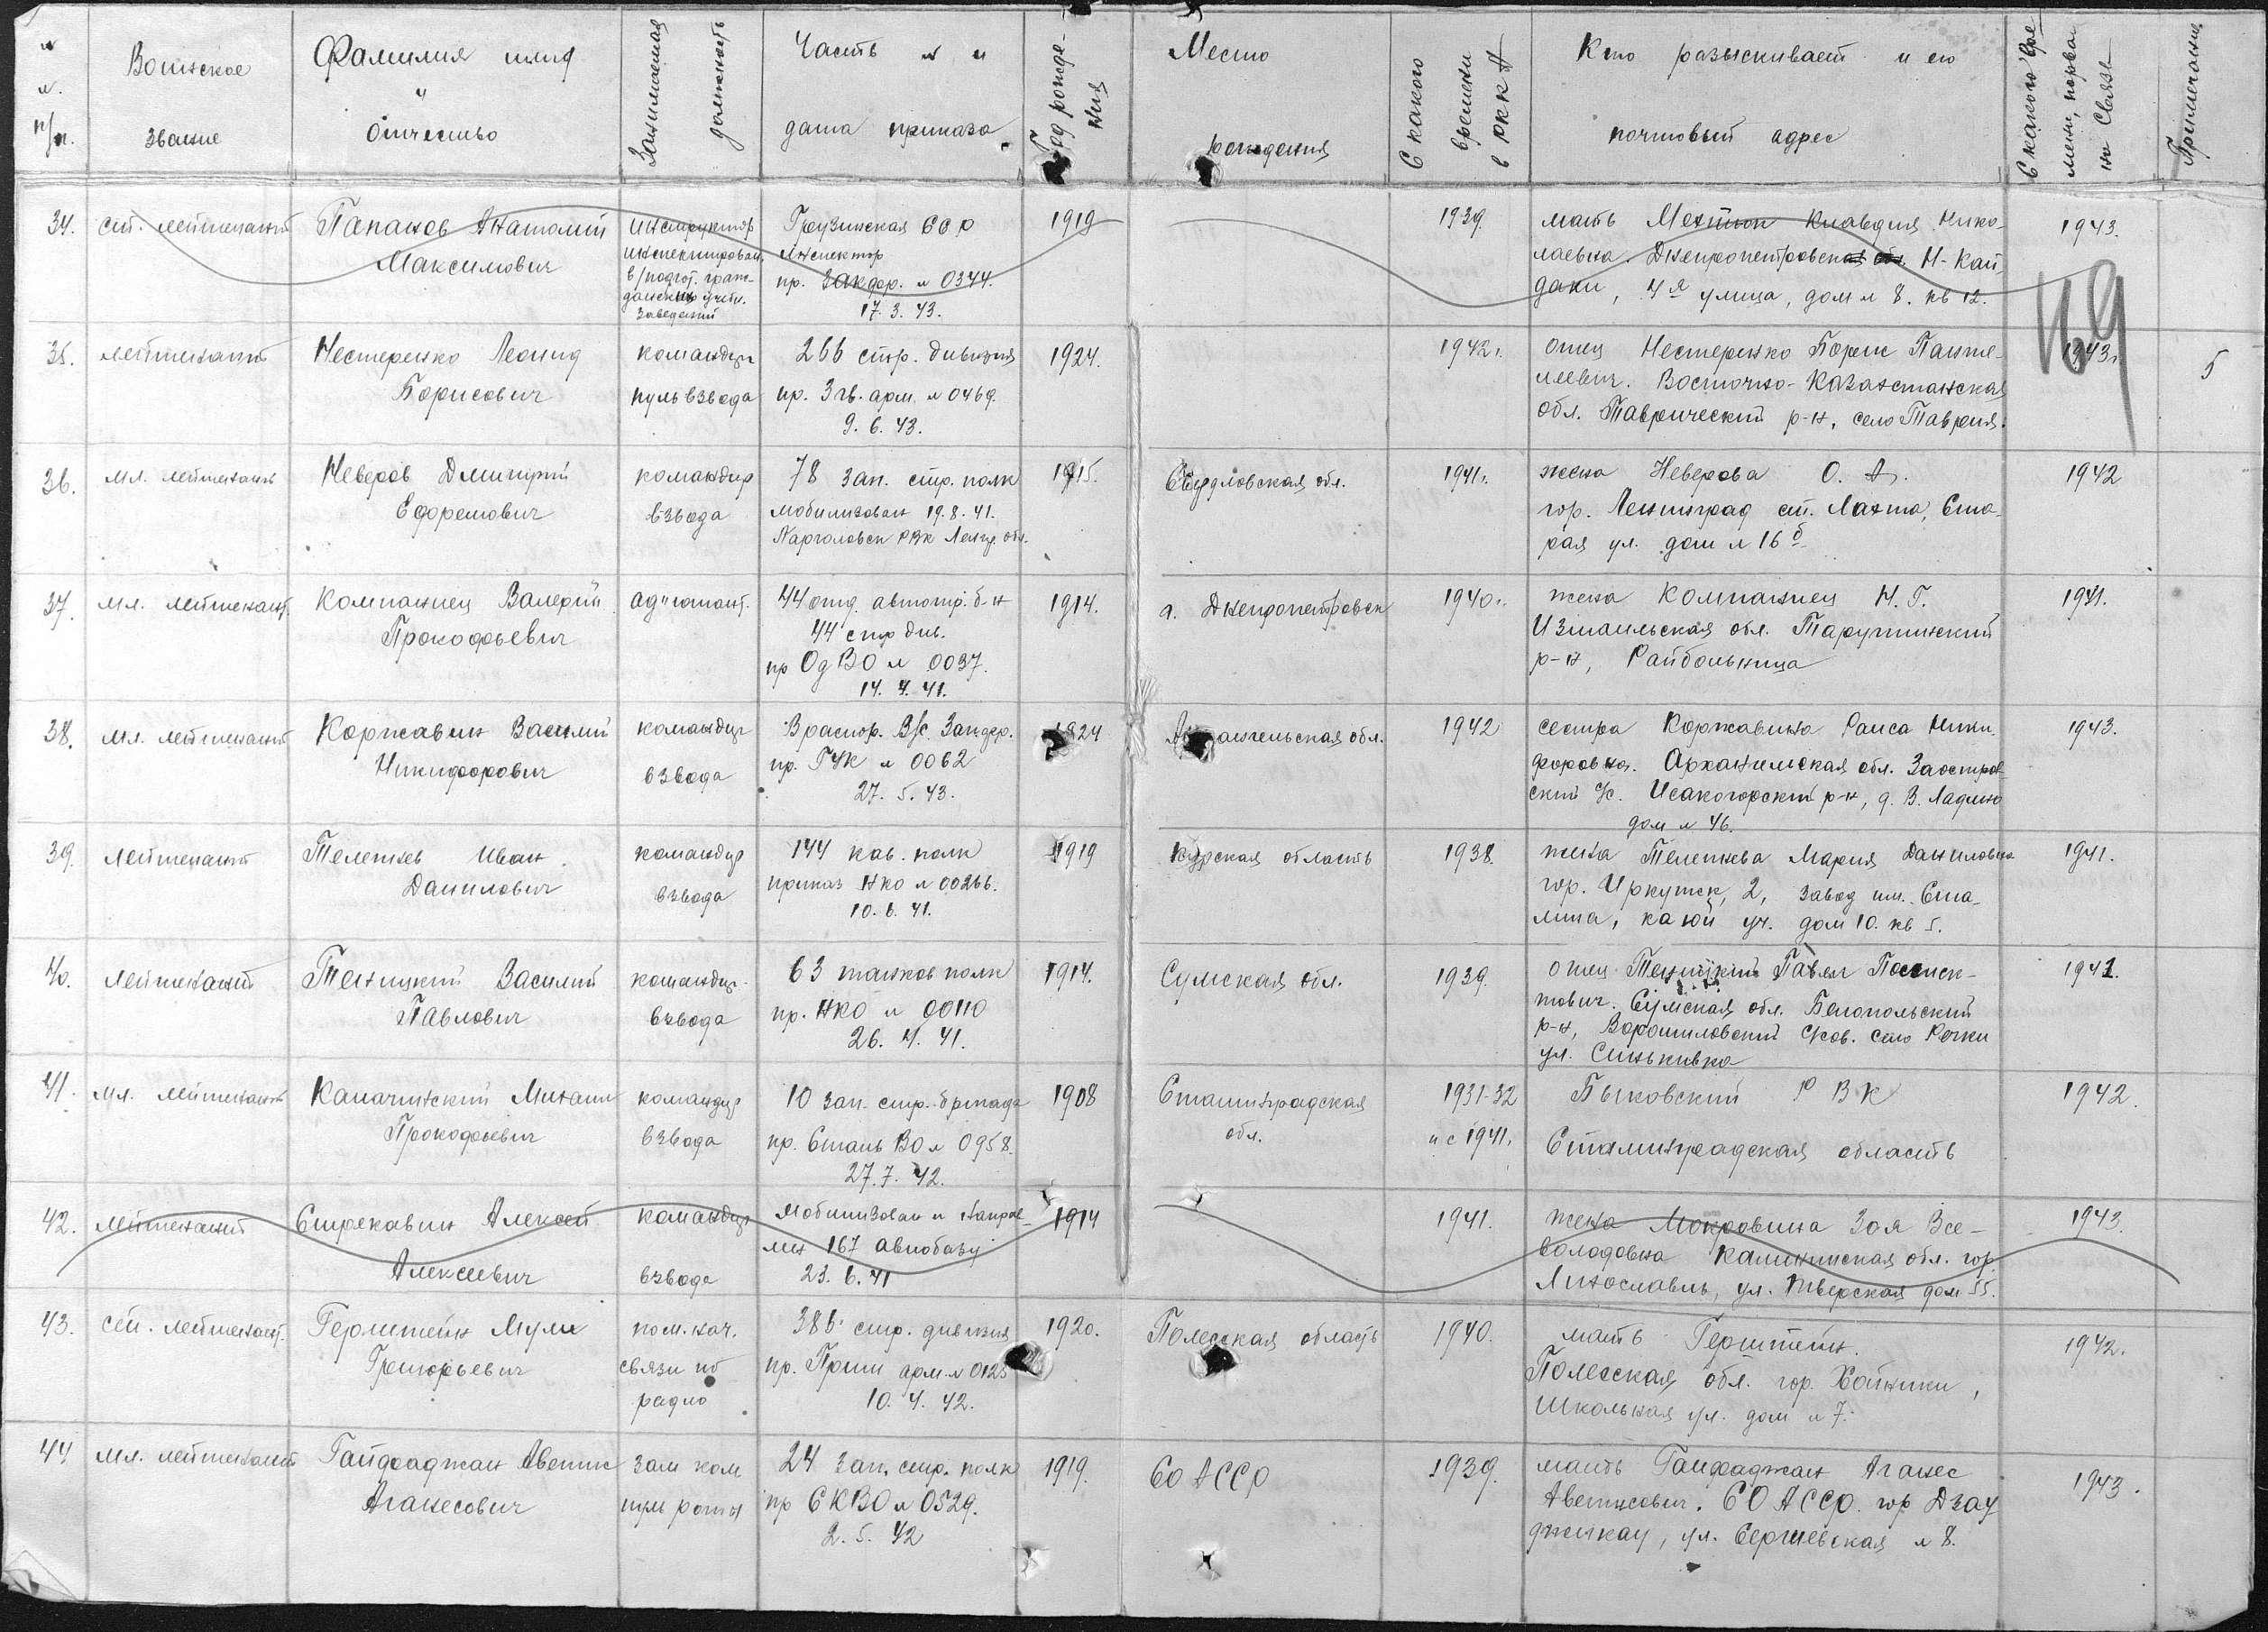 № № п/п.
Воинское звание
Фамилия имя и отчество
Занимаемая должность
Часть № и дата приказа
Год рождения
Место рождения
С какого времени в РККА
Кто разыскивает и его почтовый адрес
С какого времени, порвана связь
Примечания
34. ст. лейтенант
Папанов Анатолий
Максимович
инструктор
инспектирован.
в/подгот. граж-
данских учебн.
заведений
Грузинская ССР
инспектор
пр. Закфр. № 0344.
17.3.43.
1919
1939.
мать Клавдия Нико-
лаевна. Днепропетровск Н-Кай
даки, 4я улица, дом № 8. кв 12.
1943.
169
35. лейтенант
Нестеренко Леонид
Борисович
командир
пульвзвода
266 стр. дивизия
пр. 3 гв. арм. № 0469.
9.6.43.
1924.
1942 г.
отец Нестеренко Борис Панте-
леевич. Восточно-Казахстанская
обл. Таврический р-н, село Таврия.
1943 г.
5
36. мл. лейтенант
Неверов Дмитрий
Ефремович
командир
взвода
78 зап. стр. полк
мобилизован 19.8.41.
Парголовск РВК Ленгр. обл.
1915.
Свердловская обл.
1941 г.
жена Неверова О. А.
гор. Ленинград ст. Лахта, Ста-
рая ул. дом № 16 б
1942
37. мл. лейтенант.
Компаниец Валерий
Прокофьевич
ад"ютант.
44 отд. автотр. б-н
44 стр див.
пр ОдВО № 0037.
14.4.41.
1914.
г. Днепропетровск
1940 г.
жена Компаниец Н. Г.
Измаильская обл. Тарутинский
р-н, Райбольница
1941.
38. мл. лейтенант
Коржавин Василий
Никифорович
командир
взвода
В распор. В/с Запфр.
пр. ГУК № 0062
27.5.43.
1924
Архангельская обл.
1942
сестра Коржавина Раиса Ники-
форовна. Архангельская обл. Заостров-
ский с/с. Исакогорский р-н, д. В. Ладино
дом № 46.
1943.
39. лейтенант
Телегнев Иван
Данилович
командир
взвода
144 кав. полк
приказ НКО № 00266.
10.6.41.
1919
Курская область
1938.
жена Мария Даниловна
гор. Иркутск, 2, завод им. Ста-
лина, уч. дом 10. кв 5.
1941.
40. лейтенант
Теницкий Василий
Павлович
командир
взвода
63 танков полк
пр. НКО № 00110
26.4.41.
1914.
Сумская обл.
1939.
отец Теницкий Павел
Сумская обл. Белопольский
р-н, Ворошиловский с/сов. село Речки
ул. Синькивка
1941.
41. мл. лейтенант
Калачинский Михаил
Прокофьевич
командир
взвода
10 зап. стр. бригада
пр. Сталь ВО № 0958.
27.7.42.
1908
Сталинградская
обл.
1931-32
и с 1941.
Быковский РВК
Сталинградская область
1942.
42. лейтенант
Стрекавин Алексей
Алексеевич
командир
взвода
мобилизован и направ-
лен 167 авиобазу
23.6.41
1914
1941.
жена Мокровина Зоя Все-
володовна Калининская обл. гор.
Лихославль, ул. Тверская дом 55.
1943.
43. ст. лейтенант.
Герштейн Мули
Григорьевич
пом. нач.
связи по
радио
386 стр. дивизия
пр. Прим арм. № 0125
10.4.42.
1920.
Полесская область
1940.
мать Герштейн.
Полесская обл. гор. Хойники,
Школьная ул. дом № 7.
1942.
44. мл. лейтенант
Гайфаджан Аветис
Аганесович
зам ком
пул роты
24 зап. стр. полк
пр СКВО № 0529.
2.5.42
1919.
СО АССР
1939.
мать Гайфаджан Аганес
Аветисович. СО АССР. гор Дзау
джикау, ул. Сергиевская № 8.
1943.